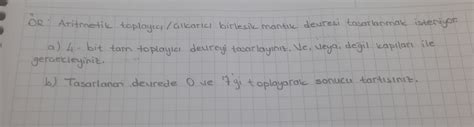 ÖR: Aritmetik toplayıcı/Çıkarıcı birleşik mantık devresi tasarlanmak isteniyor
a) 4-bit tam toplayıcı devreyi tasarlayınız. Ve, veya, değil kapıları ile
gerçekleyiniz.
b) Tasarlanan devrede 0 ve 7'yi toplayarak sonucu tartışınız.